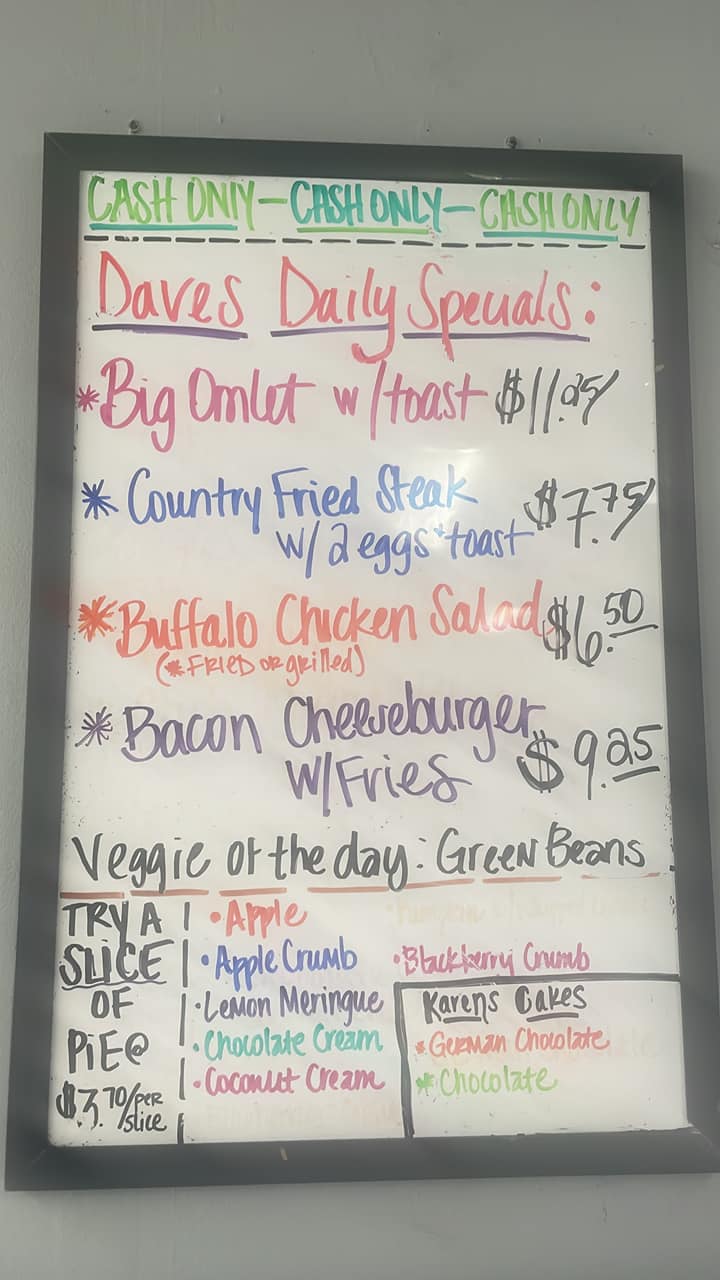 CASH ONLY - CASH ONLY - CASH ONLY
Daves Daily Specials:
*Big Omlet w/toast $11.25
* Country Fried Steak $7.75
w/ 2 eggs + toast
*Buffalo Chicken Salad $6.50
(*FRIED OR grilled)
* Bacon Cheeseburger
W/Fries $9.25
Veggie of the day: Green Beans
TRY A
SLiCE
OF
PiE@
$3.70/PER
slice
• Apple
• Apple Crumb
• Lemon Meringue
• Chocolate Cream
• Coconut Cream
• Blackberry Crumb
Karens Cakes
*German Chocolate
* Chocolate